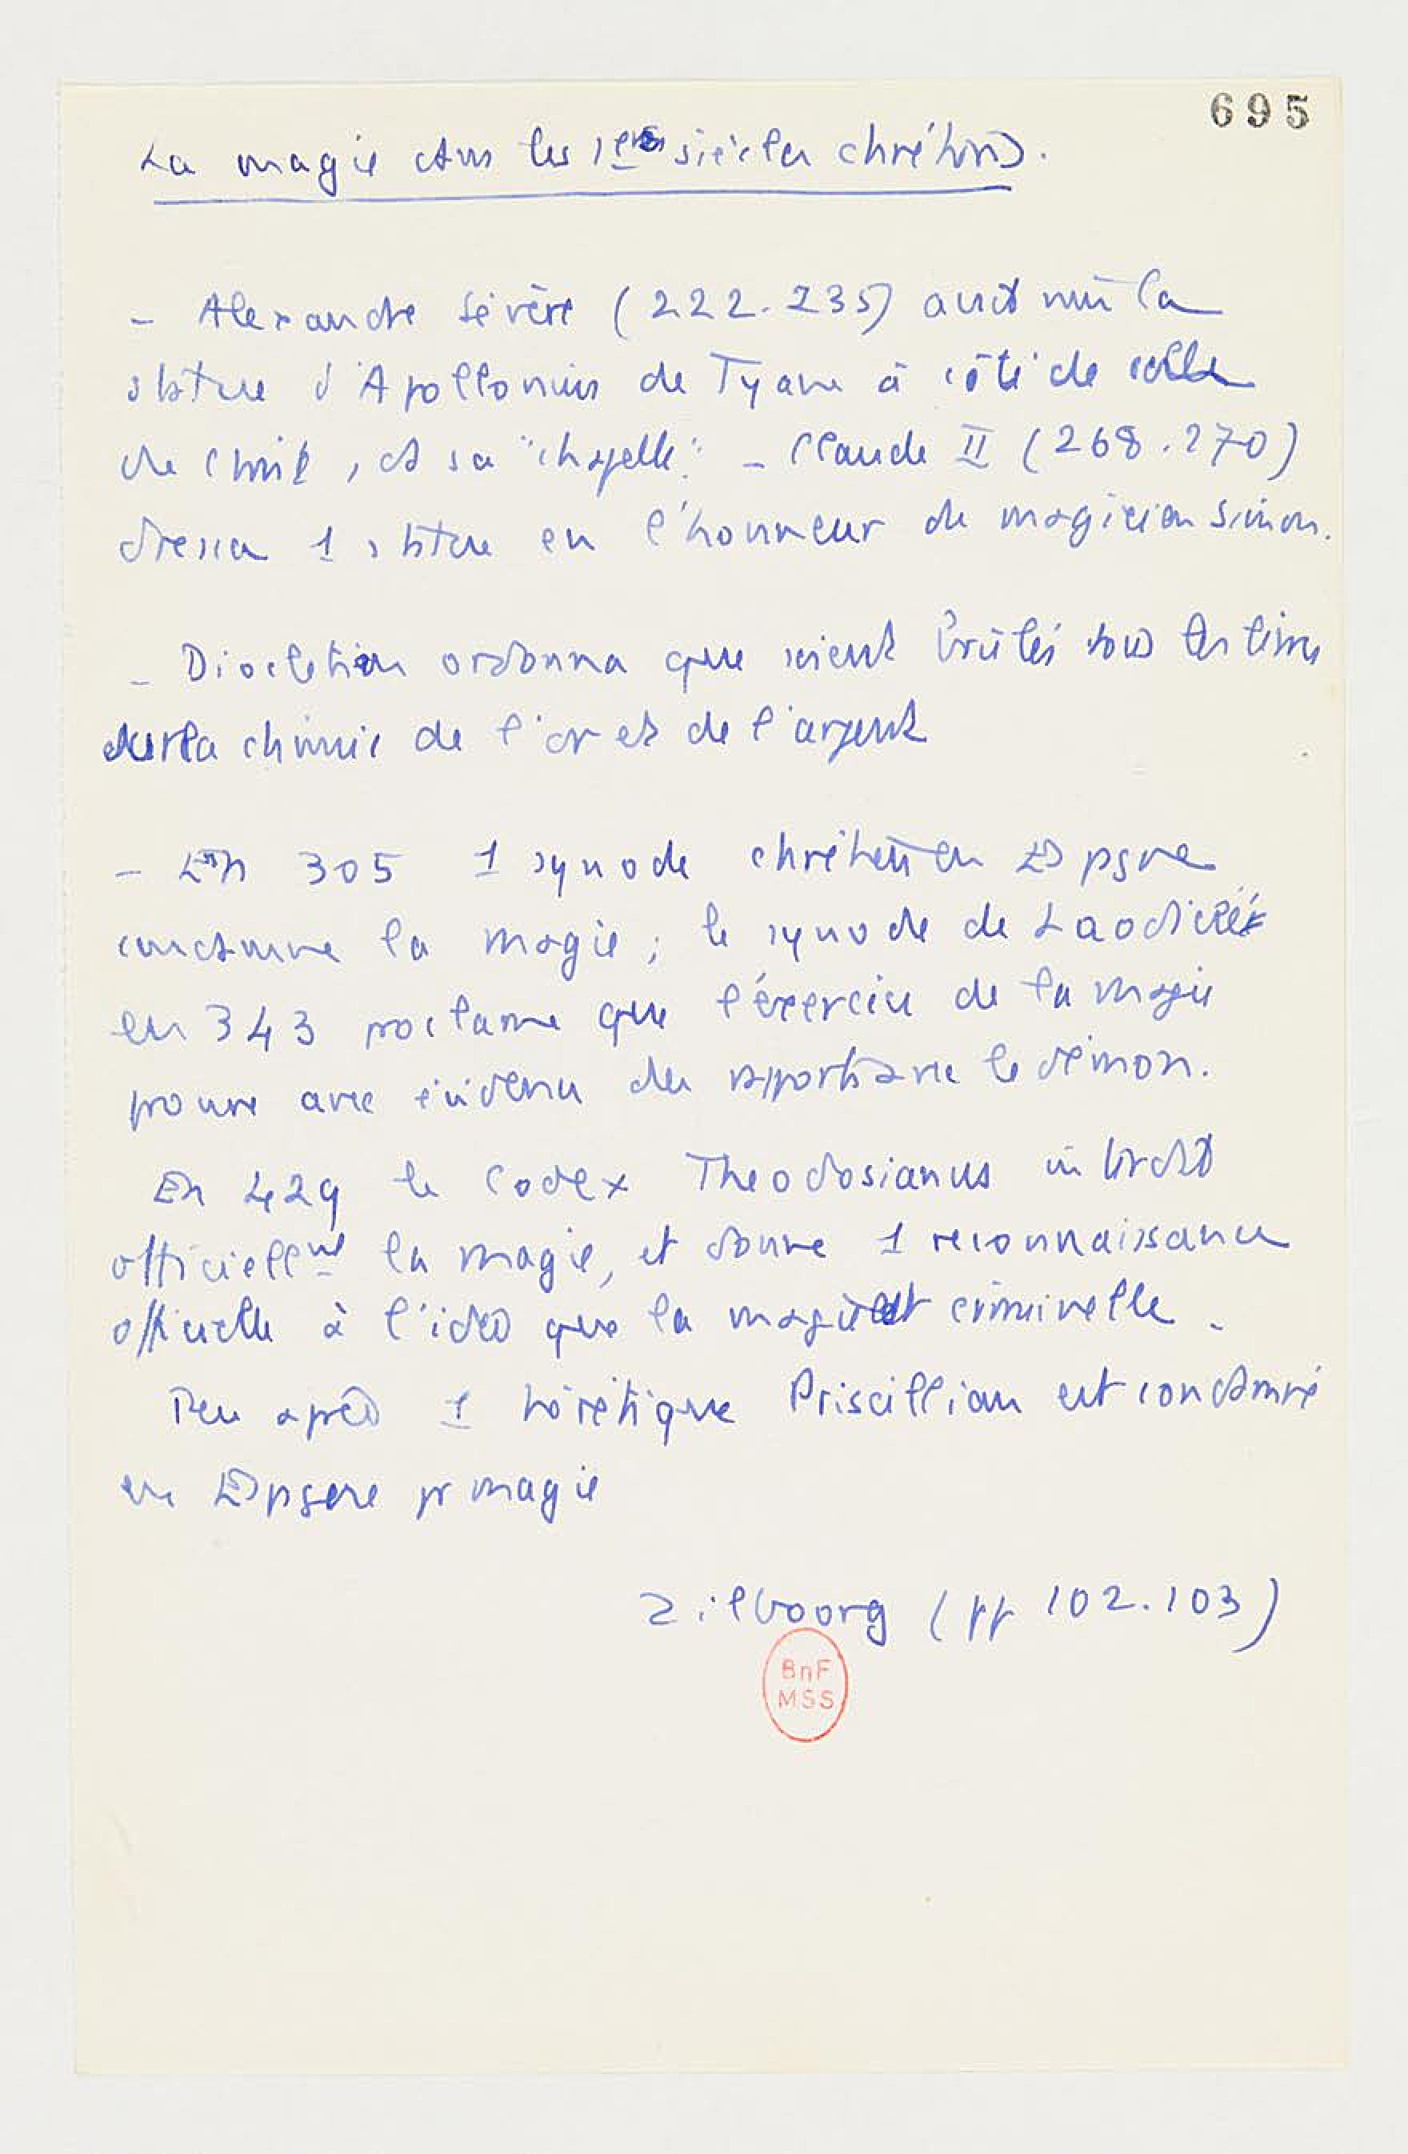 695
La magie dans les 1ers siècles chrétiens.
- Alexandre Sévère (222.235) avait mis la
statue d'Apollonius de Tyane à côté de celle
de Christ, ds sa "chapelle". - Claude II (268.270)
dressa 1 statue en l'honneur du magicien Simon.
- Dioclétien ordonna que soient brûlés tous les livres
sur la chimie de l'or et de l'argent
- En 305 1 synode chrétien en Espagne
condamne la magie ; le synode de Laodicée
en 343 proclame que l'exercice de la magie
prouve avec évidence des rapports avec le démon.
En 429 le Codex Theodosianus interdit
officiellnt la magie, et donne 1 reconnaissance
officielle à l'idée que la magie est criminelle.
Peu après 1 hérétique Priscillian est condamné
en Espagne pr magie
Zilboorg (pp 102.103)
BnF
MSS